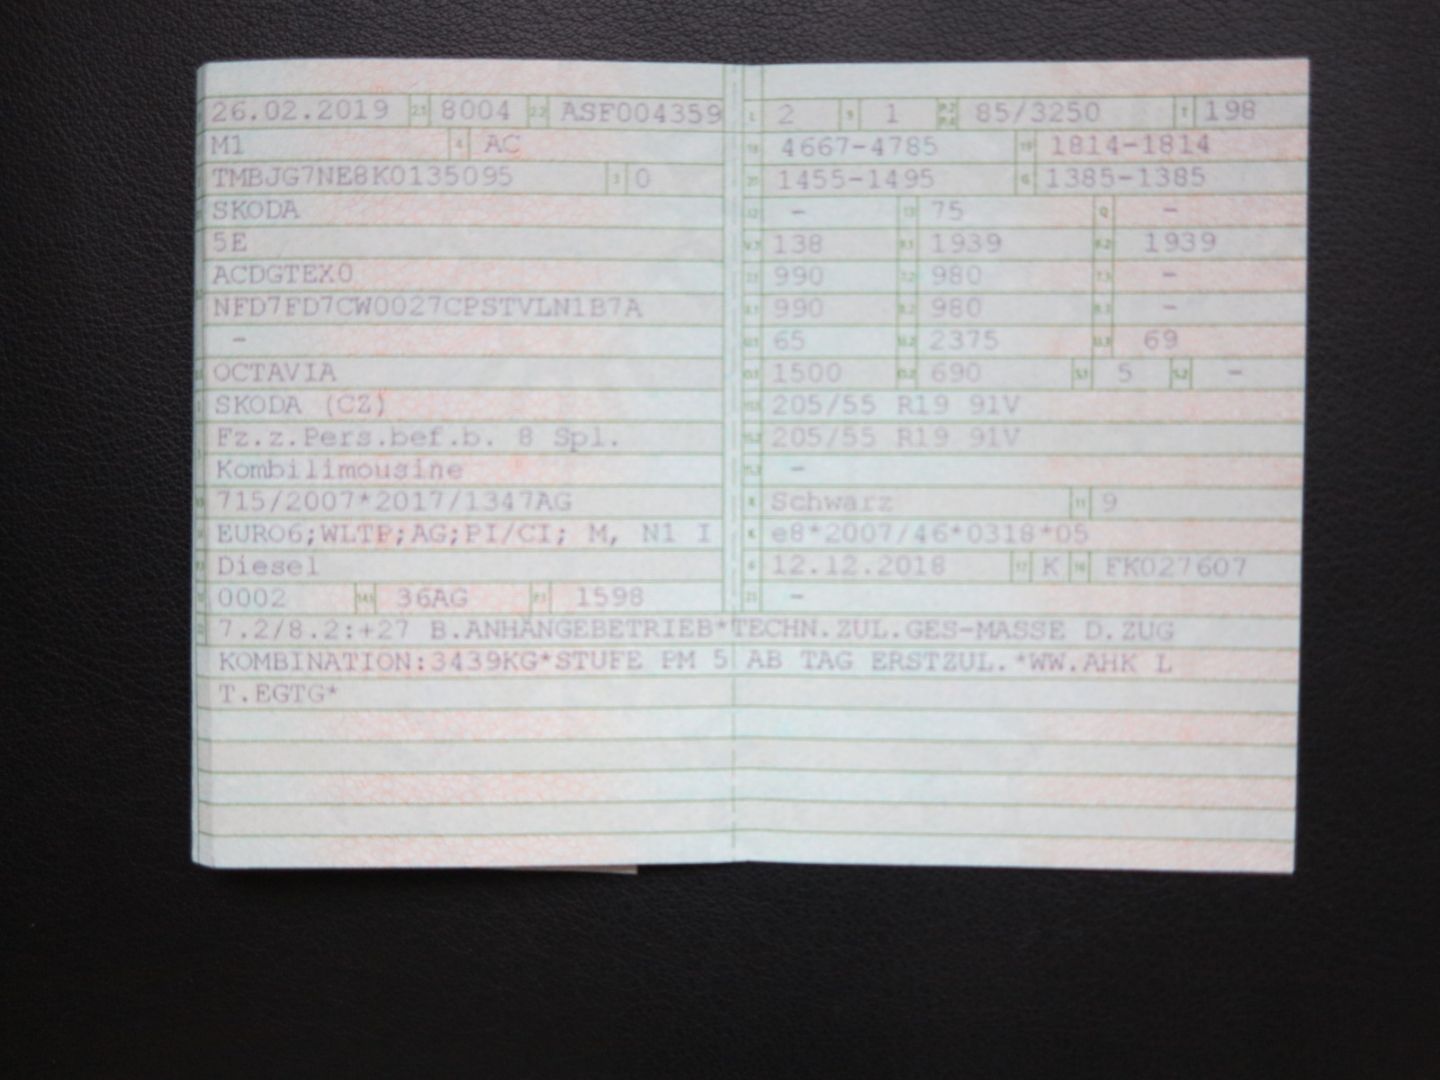 26.02.2019 2.1 8004 2.2 ASF004359
M1 4 AC
TMBJG7NE8K0135095 3 0
SKODA
5E
ACDGTEX0
NFD7FD7CW0027CPSTVLN1B7A
-
OCTAVIA
SKODA (CZ)
Fz.z.Pers.bef.b. 8 Spl.
Kombilimousine
715/2007*2017/1347AG
EURO6;WLTP;AG;PI/CI; M, N1 I
Diesel
0002 14.1 36AG P.1 1598
L 2 9 1 P.2 P.4 85/3250 T 198
18 4667-4785 19 1814-1814
20 1455-1495 G 1385-1385
12 - 13 75 Q -
V.7 138 F.1 1939 F.2 1939
7.1 990 7.2 980 7.3 -
8.1 990 8.2 980 8.3 -
U.1 65 U.2 2375 U.3 69
O.1 1500 O.2 690 S.1 5 S.2 -
15.1 205/55 R19 91V
15.2 205/55 R19 91V
15.3 -
R Schwarz 11 9
K e8*2007/46*0318*05
6 12.12.2018 17 K 16 FK027607
21 -
7.2/8.2:+27 B.ANHÄNGEBETRIEB*TECHN.ZUL.GES-MASSE D.ZUG
KOMBINATION:3439KG*STUFE PM 5 AB TAG ERSTZUL.*WW.AHK L
T.EGTG*